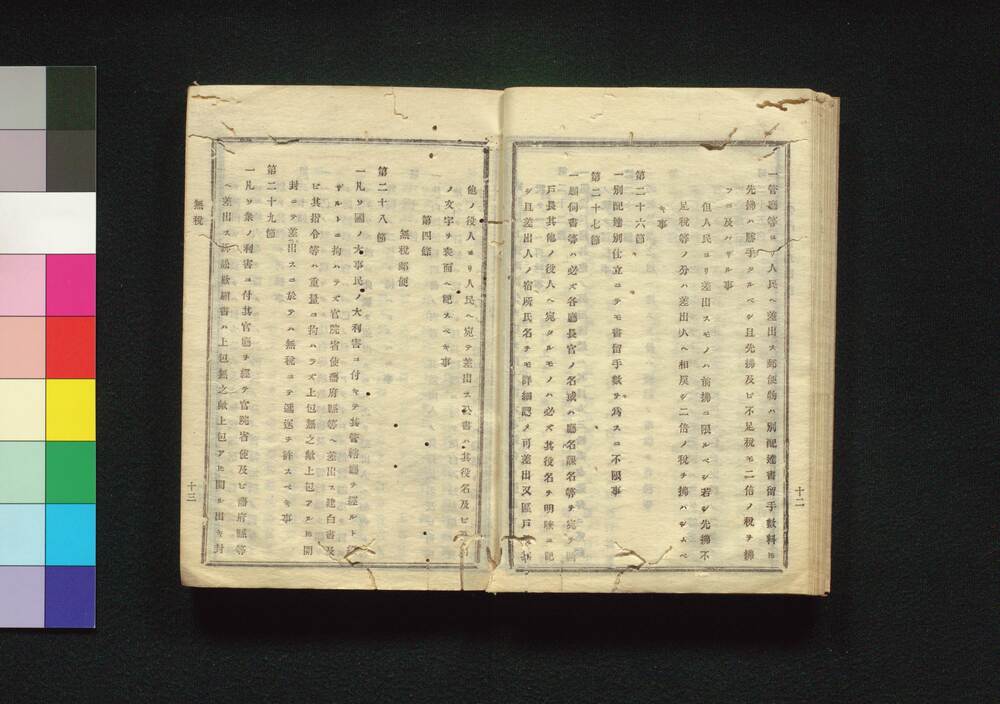 一管廳等ヨリ人民ヘ差出ス郵便物ハ別配達書留手數料ヒ
先拂ハ勝手タルベシ且先拂及ヒ不足税モ二倍ノ税ヲ拂
フニ及バザル事
但人民ヨリ差出スモノハ前拂ニ限ルベシ若シ先拂不
足税等ノ分ハ差出人ヘ相戻シ二倍ノ税ヲ拂ハシムベ
キ事
第二十六節
一別配達別仕立ニテモ書留手數ヲ爲スニ不限事
第二十七節
一願伺書等ハ必ズ各廳長官ノ名或ハ廳名課名等ヲ宛
戸長其他ノ役人ヘ宛タルモノハ必ズ其役名ヲ明瞭ニ記
シ且差出人ノ宿所氏名ヲモ詳細認メ可差出又區戸長
十二
他ノ役人ヨリ人民ヘ宛テ差出ス公書ハ其役名及ヒ
ノ文字ヲ表面ヘ記スベキ事
第四條
無税郵便
第二十八節
一凡ソ國ノ大事民ノ大利害ニ付キテ其管轄廳ヲ經ルト
ザルトニ拘ハラズ官院省使廳府縣等ヘ差出ス建白書及
ヒ其指令等ハ重量ニ拘ハラズ上包無之歟上包アルヒ開
封ニテ差出スニ於テハ無税ニテ遞送ヲ許スベキ事
第二十九節
一凡ソ衆ノ利害ニ付其官廳ヲ經テ官院省使及ヒ廳府縣等
ヘ差出ス訴訟歎願書ハ上包無之歟上包アルヒ開キ出キ封
無税
十三